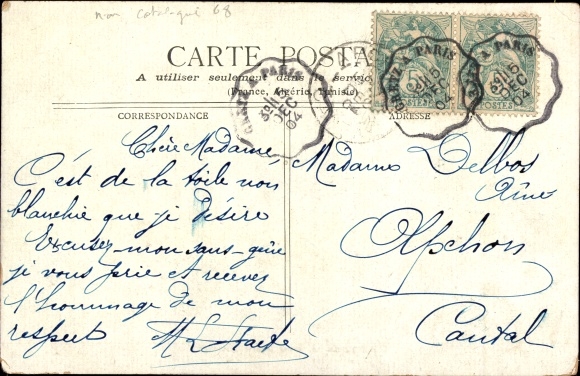 non catalogué 68
CARTE POSTA
A utiliser seulement dans le service
(France, Algérie, Tunisie)
CORRESPONDANCE
ADRESSE
A PARIS
5
DEC
04
A PARIS
5
DEC
04
A PARIS
5
DEC
04
POSTES
POSTES
Chère Madame,
C'est de la toile non
blanchie que je désire
Excusez-mon sans-gêne
je vous prie et recevez
l'hommage de mon
respect
Madame Delbos
Aîné
Apchon
Cantal